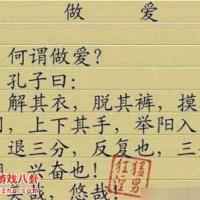 做 爱
何谓做爱？
孔子曰：
解其衣，脱其裤，摸
，上下其手，举阳入
退三分，反复也，三
，兴奋也！
美哉，悠哉！
猛男
狂淫
游戏八卦